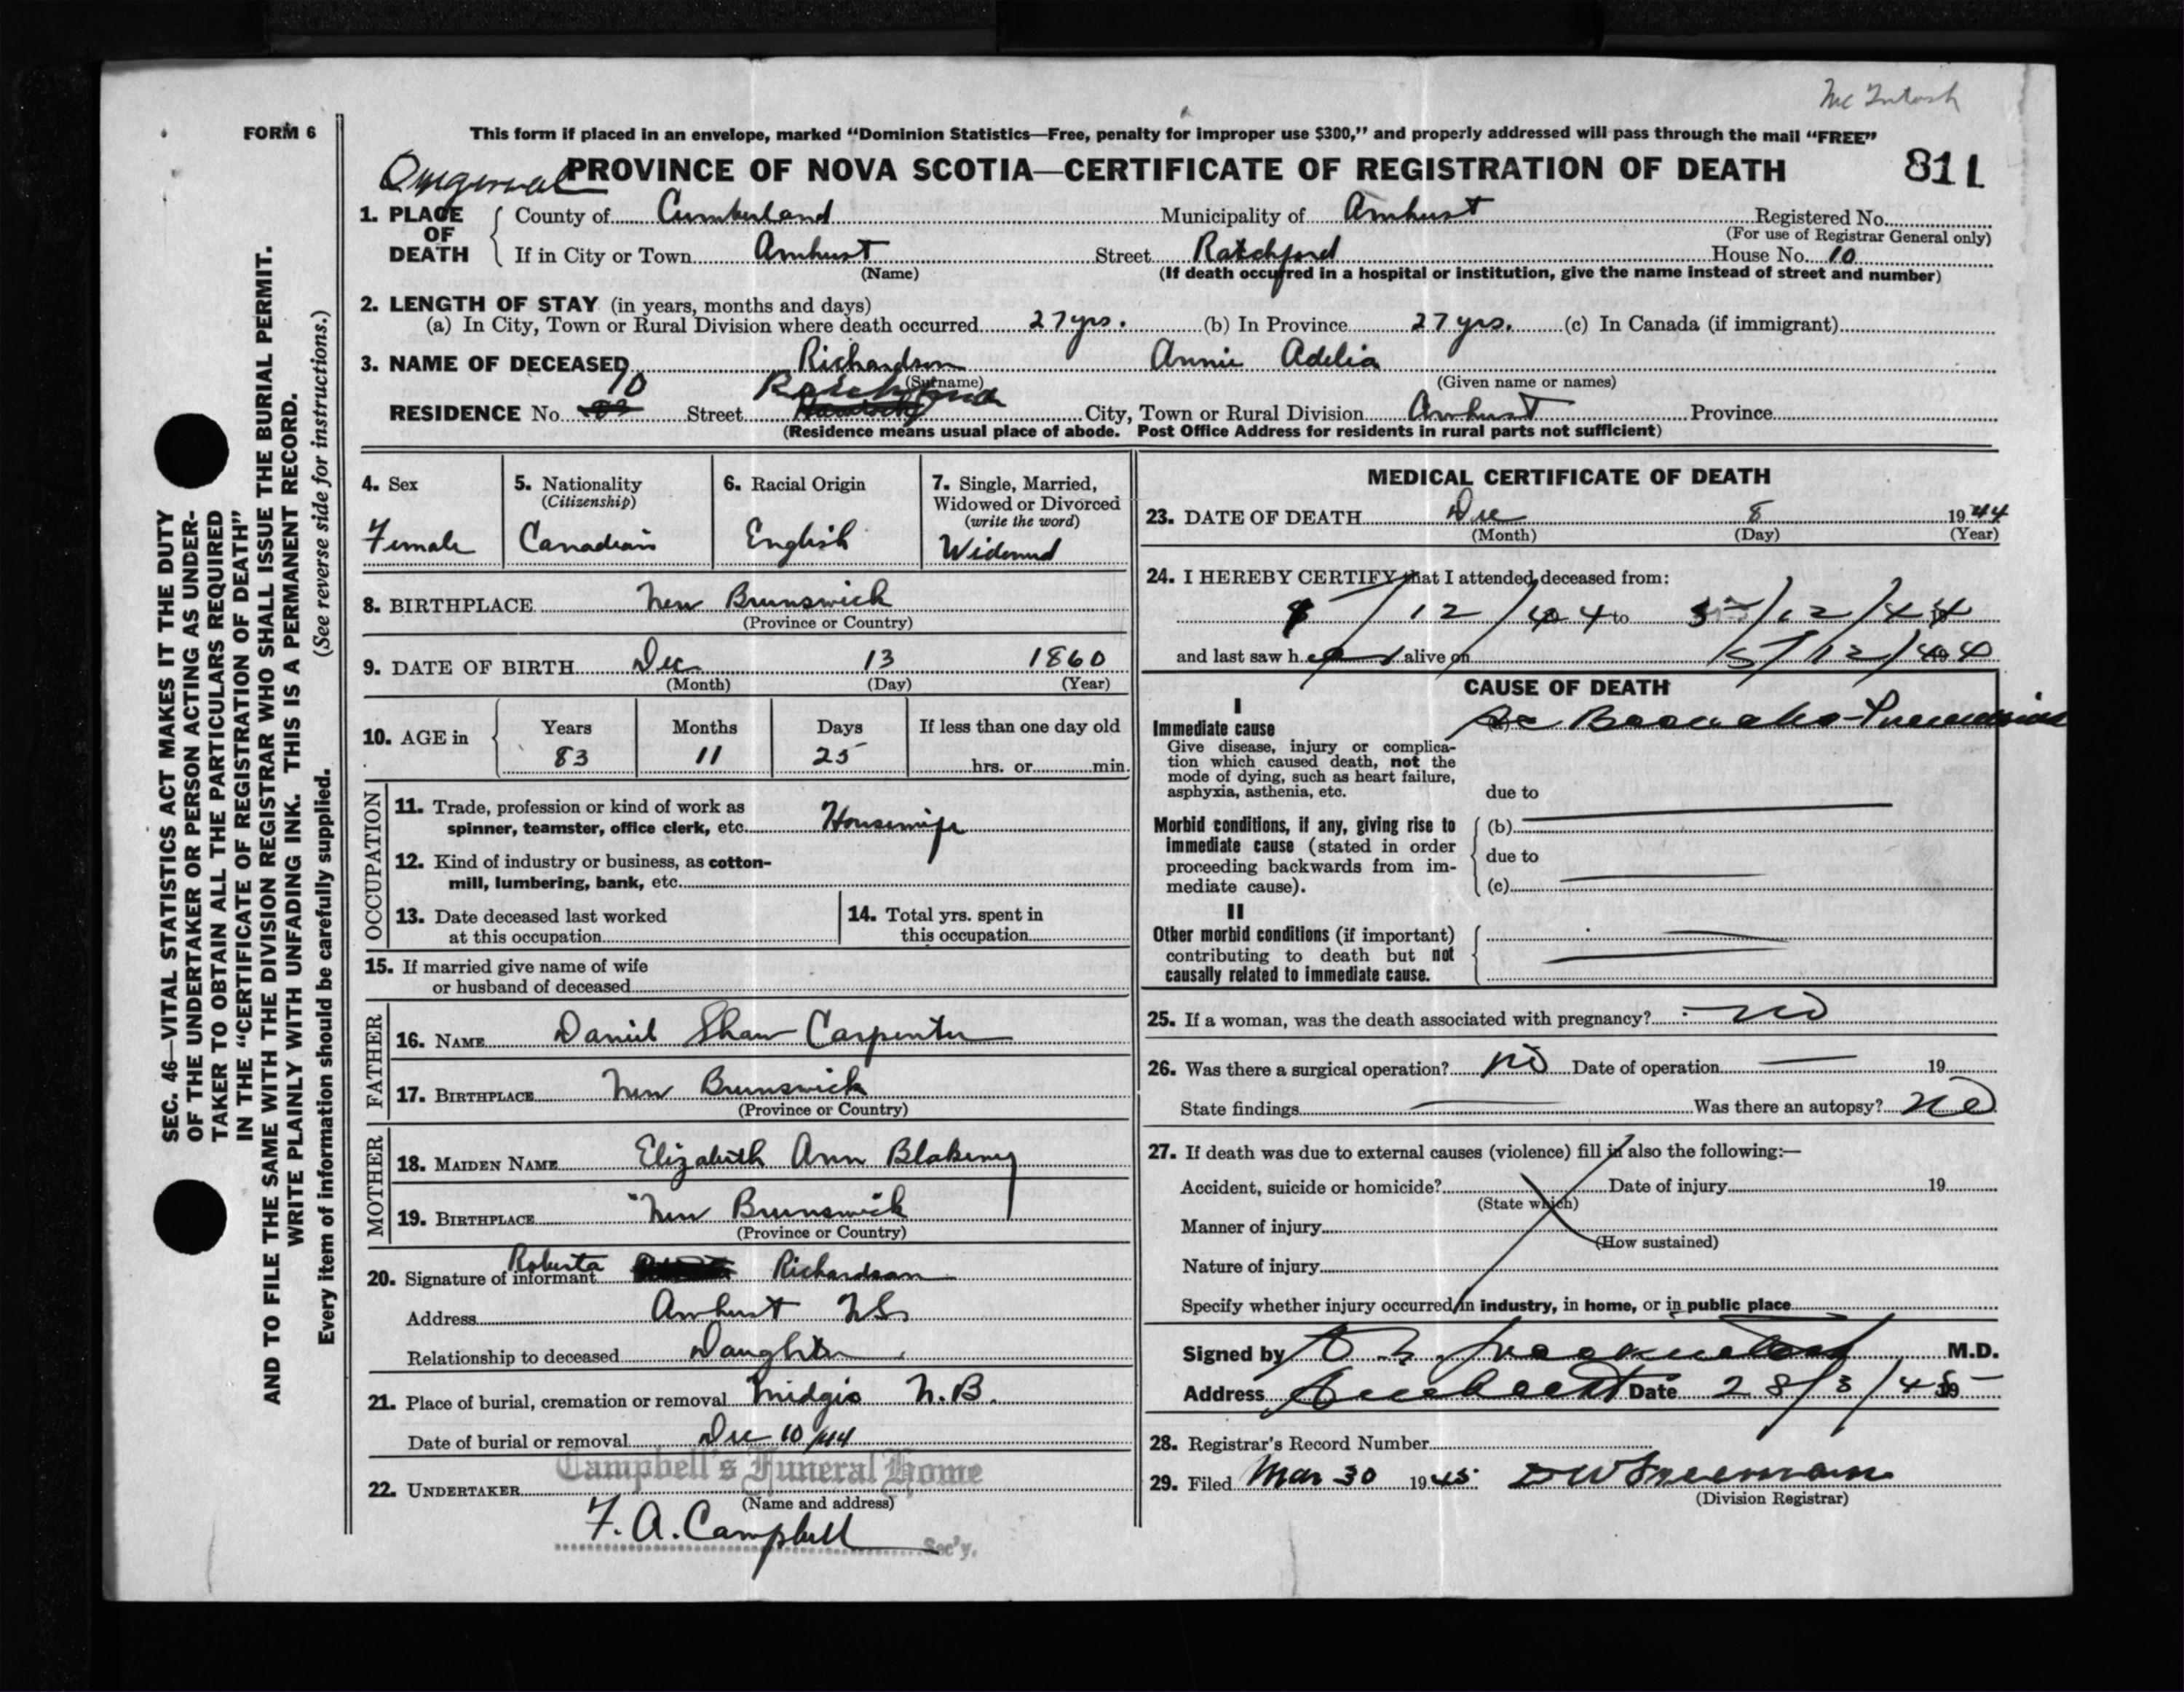 McIntosh
FORM 6
This form if placed in an envelope, marked "Dominion Statistics—Free, penalty for improper use $300," and properly addressed will pass through the mail "FREE"
PROVINCE OF NOVA SCOTIA—CERTIFICATE OF REGISTRATION OF DEATH 811
1. PLACE OF DEATH { County of Cumberland Municipality of Amherst Registered No.
(For use of Registrar General only)
If in City or Town Amherst Street Ratchford House No. 10
(Name) (If death occurred in a hospital or institution, give the name instead of street and number)
2. LENGTH OF STAY (in years, months and days)
(a) In City, Town or Rural Division where death occurred 27 yrs. (b) In Province 27 yrs. (c) In Canada (if immigrant)
3. NAME OF DECEASED Richardson Annie Adelia
(Surname) (Given name or names)
RESIDENCE No. 10 Street Ratchford City, Town or Rural Division Amherst Province
(Residence means usual place of abode. Post Office Address for residents in rural parts not sufficient)
SEC. 46—VITAL STATISTICS ACT MAKES IT THE DUTY
OF THE UNDERTAKER OR PERSON ACTING AS UNDER-
TAKER TO OBTAIN ALL THE PARTICULARS REQUIRED
IN THE "CERTIFICATE OF REGISTRATION OF DEATH"
AND TO FILE THE SAME WITH THE DIVISION REGISTRAR WHO SHALL ISSUE THE BURIAL PERMIT.
WRITE PLAINLY WITH UNFADING INK. THIS IS A PERMANENT RECORD.
Every item of information should be carefully supplied. (See reverse side for instructions.)
4. Sex
Female
5. Nationality
(Citizenship)
Canadian
6. Racial Origin
English
7. Single, Married,
Widowed or Divorced
(write the word)
Widowed
8. BIRTHPLACE New Brunswick
(Province or Country)
9. DATE OF BIRTH Dec 13 1860
(Month) (Day) (Year)
10. AGE in { Years Months Days If less than one day old
83 11 25 hrs. or min.
OCCUPATION
11. Trade, profession or kind of work as
spinner, teamster, office clerk, etc. Housewife
12. Kind of industry or business, as cotton-
mill, lumbering, bank, etc.
13. Date deceased last worked
at this occupation
14. Total yrs. spent in
this occupation
15. If married give name of wife
or husband of deceased
FATHER
16. NAME Daniel Shaw Carpenter
17. BIRTHPLACE New Brunswick
(Province or Country)
MOTHER
18. MAIDEN NAME Elizabeth Ann Blakeny
19. BIRTHPLACE New Brunswick
(Province or Country)
20. Signature of informant Roberta Richardson
Address Amherst N.S.
Relationship to deceased Daughter
21. Place of burial, cremation or removal Midgic N.B.
Date of burial or removal Dec 10/44
Campbell's Funeral Home
22. UNDERTAKER
(Name and address)
F. A. Campbell
Sec'y.
MEDICAL CERTIFICATE OF DEATH
23. DATE OF DEATH Dec 8 1944
(Month) (Day) (Year)
24. I HEREBY CERTIFY that I attended deceased from:
/12/44 to 5/12/44
and last saw her alive on 5/12/44
CAUSE OF DEATH
I
Immediate cause
Give disease, injury or complica-
tion which caused death, not the
mode of dying, such as heart failure,
asphyxia, asthenia, etc.
(a) Broncho-Pneumonia
due to
Morbid conditions, if any, giving rise to
immediate cause (stated in order
proceeding backwards from im-
mediate cause).
(b)
due to
(c)
II
Other morbid conditions (if important)
contributing to death but not
causally related to immediate cause.
25. If a woman, was the death associated with pregnancy? no
26. Was there a surgical operation? no Date of operation 19
State findings Was there an autopsy? no
27. If death was due to external causes (violence) fill in also the following:—
Accident, suicide or homicide? Date of injury 19
(State which)
Manner of injury
(How sustained)
Nature of injury
Specify whether injury occurred in industry, in home, or in public place
Signed by M.D.
Address Amherst Date 28/3/45 19
28. Registrar's Record Number
29. Filed Mar 30 1945 D W Freeman
(Division Registrar)